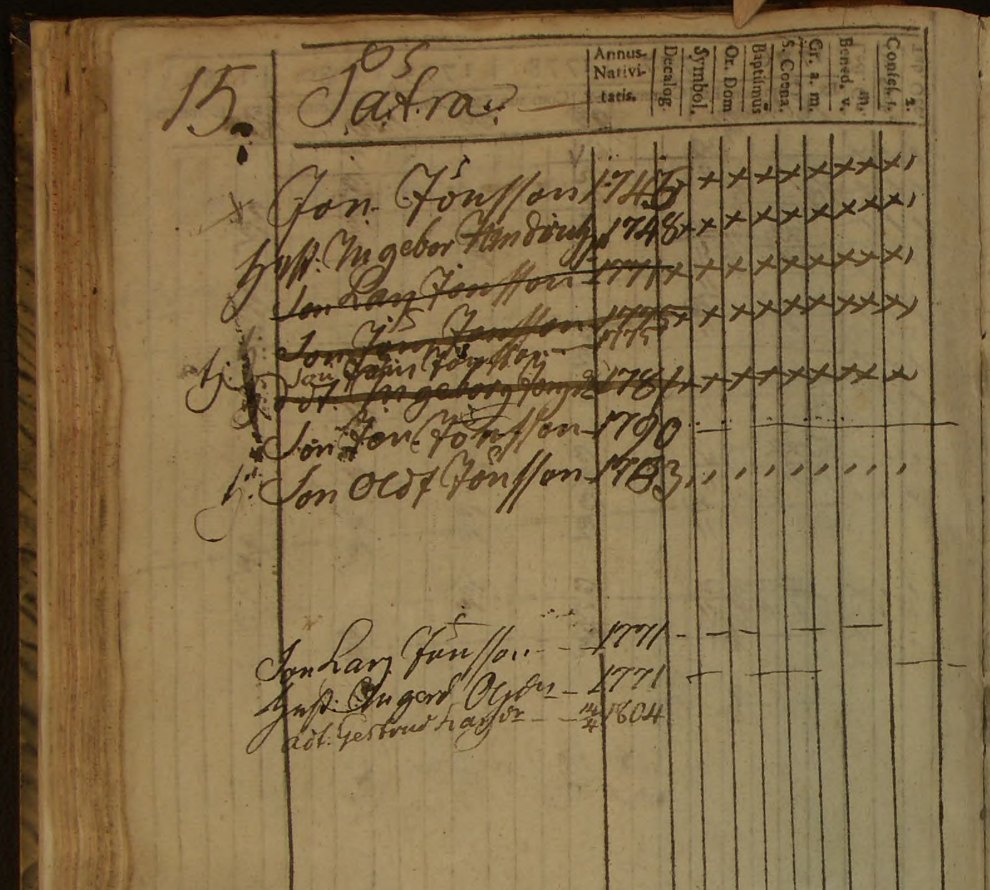 15. Sätra
Annus Nativitatis. Decalog. Symbol. Or. Dom Baptismus S. Coena. Gr. a. m. Bened. v. m. Confess. 1. 2.
Jon Jönsson 1745
hust. Ingebor 1748
Son Lars Jönsson 1771
Son Jöns Jönsson 1775
Son Jöns Jönsson 1775
dot. Ingeborg 1781
Son Jon Jönsson 1790
h. Son Olof Jönsson 1783
Son Lars Jönsson 1771
hust. Ingerd Olsdr 1771
dot. Gertrud Larsdr 1804